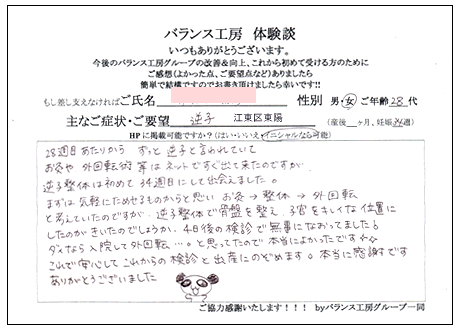 バランス工房 体験談
いつもありがとうございます。
今後のバランス工房グループの改善&向上、これから初めて受ける方のために
ご感想(よかった点、ご要望点など)ありましたら
簡単で結構ですのでお書き頂けましたら幸いです!!
もし差し支えなければご氏名 性別 男・女 ご年齢28代
主なご症状・ご要望 逆子 江東区東陽 (産後 ヶ月、妊娠34週)
HPに掲載可能ですか?(はい・いいえ・イニシャルなら可能)
28週目あたりから ずっと逆子と言われていて
お灸や 外回転術 等はネットですぐ出て来たのですが
逆子整体は初めて 34週目にして出会えました。
まずは気軽にためせるものからと思い お灸→整体→外回転
と考えていたのですが、逆子整体で骨盤を整え、子宮をきレくな位置に
したのがきいたのでしょうか、4日後の検診で無事になおってました!
ダメなら入院して外回転…。と思ってたので本当によかったです
これで安心してこれからの検診と出産にのぞめます。本当に感謝です
ありがとうございました
ご協力感謝いたします!!! byバランス工房グループ一同